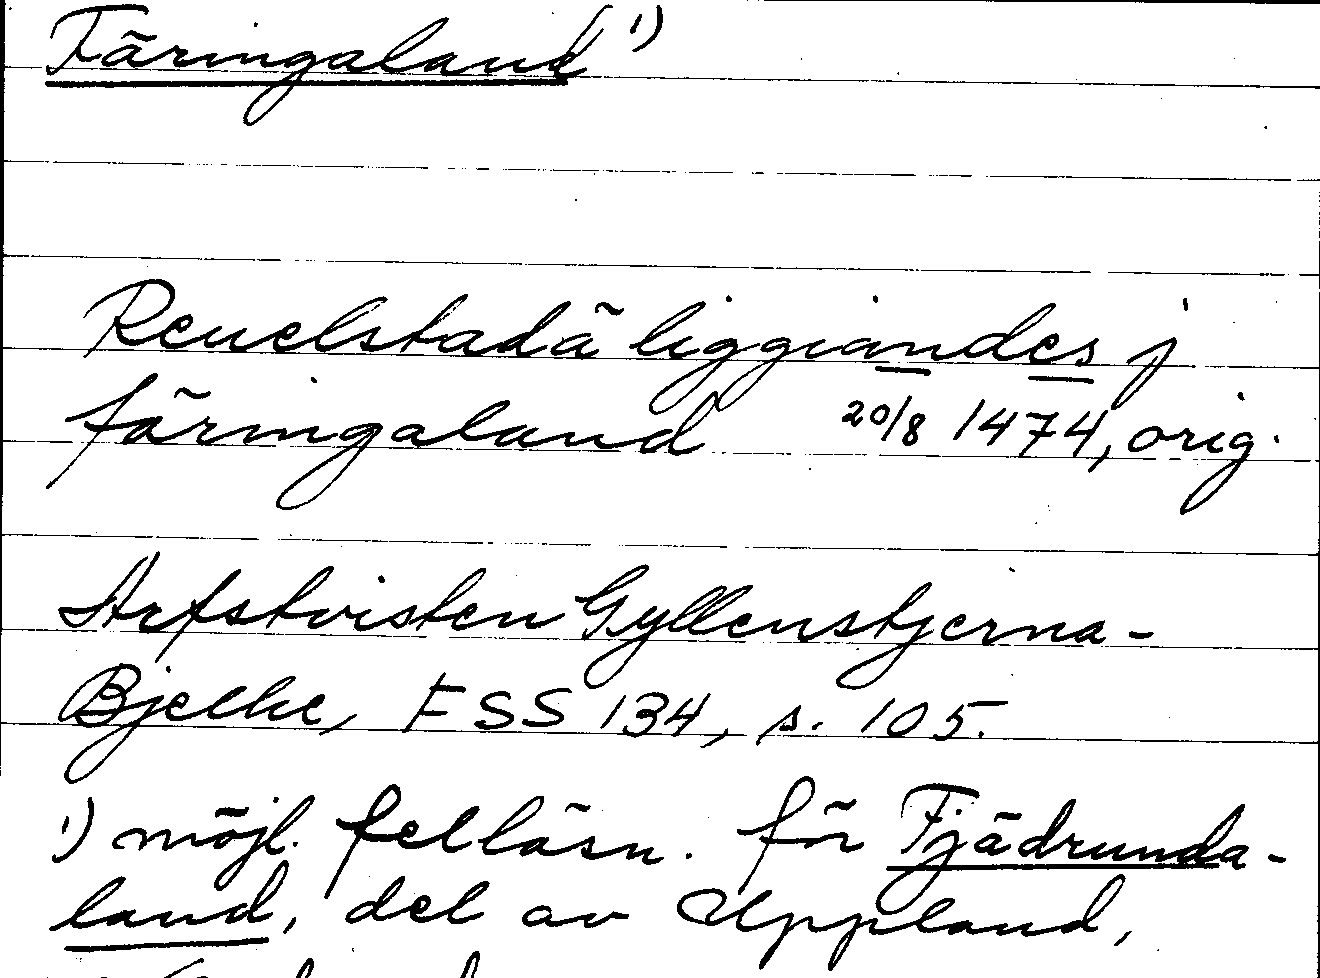 Färingaland 1)
Reuelstadä liggiandes j
färingaland 20/8 1474, orig.
Arfstvisten Gyllenstjerna-
Bjelke, FSS 134, s. 105.
1) möjl. felläsn. för Fjädrunda-
land, del av Uppland,